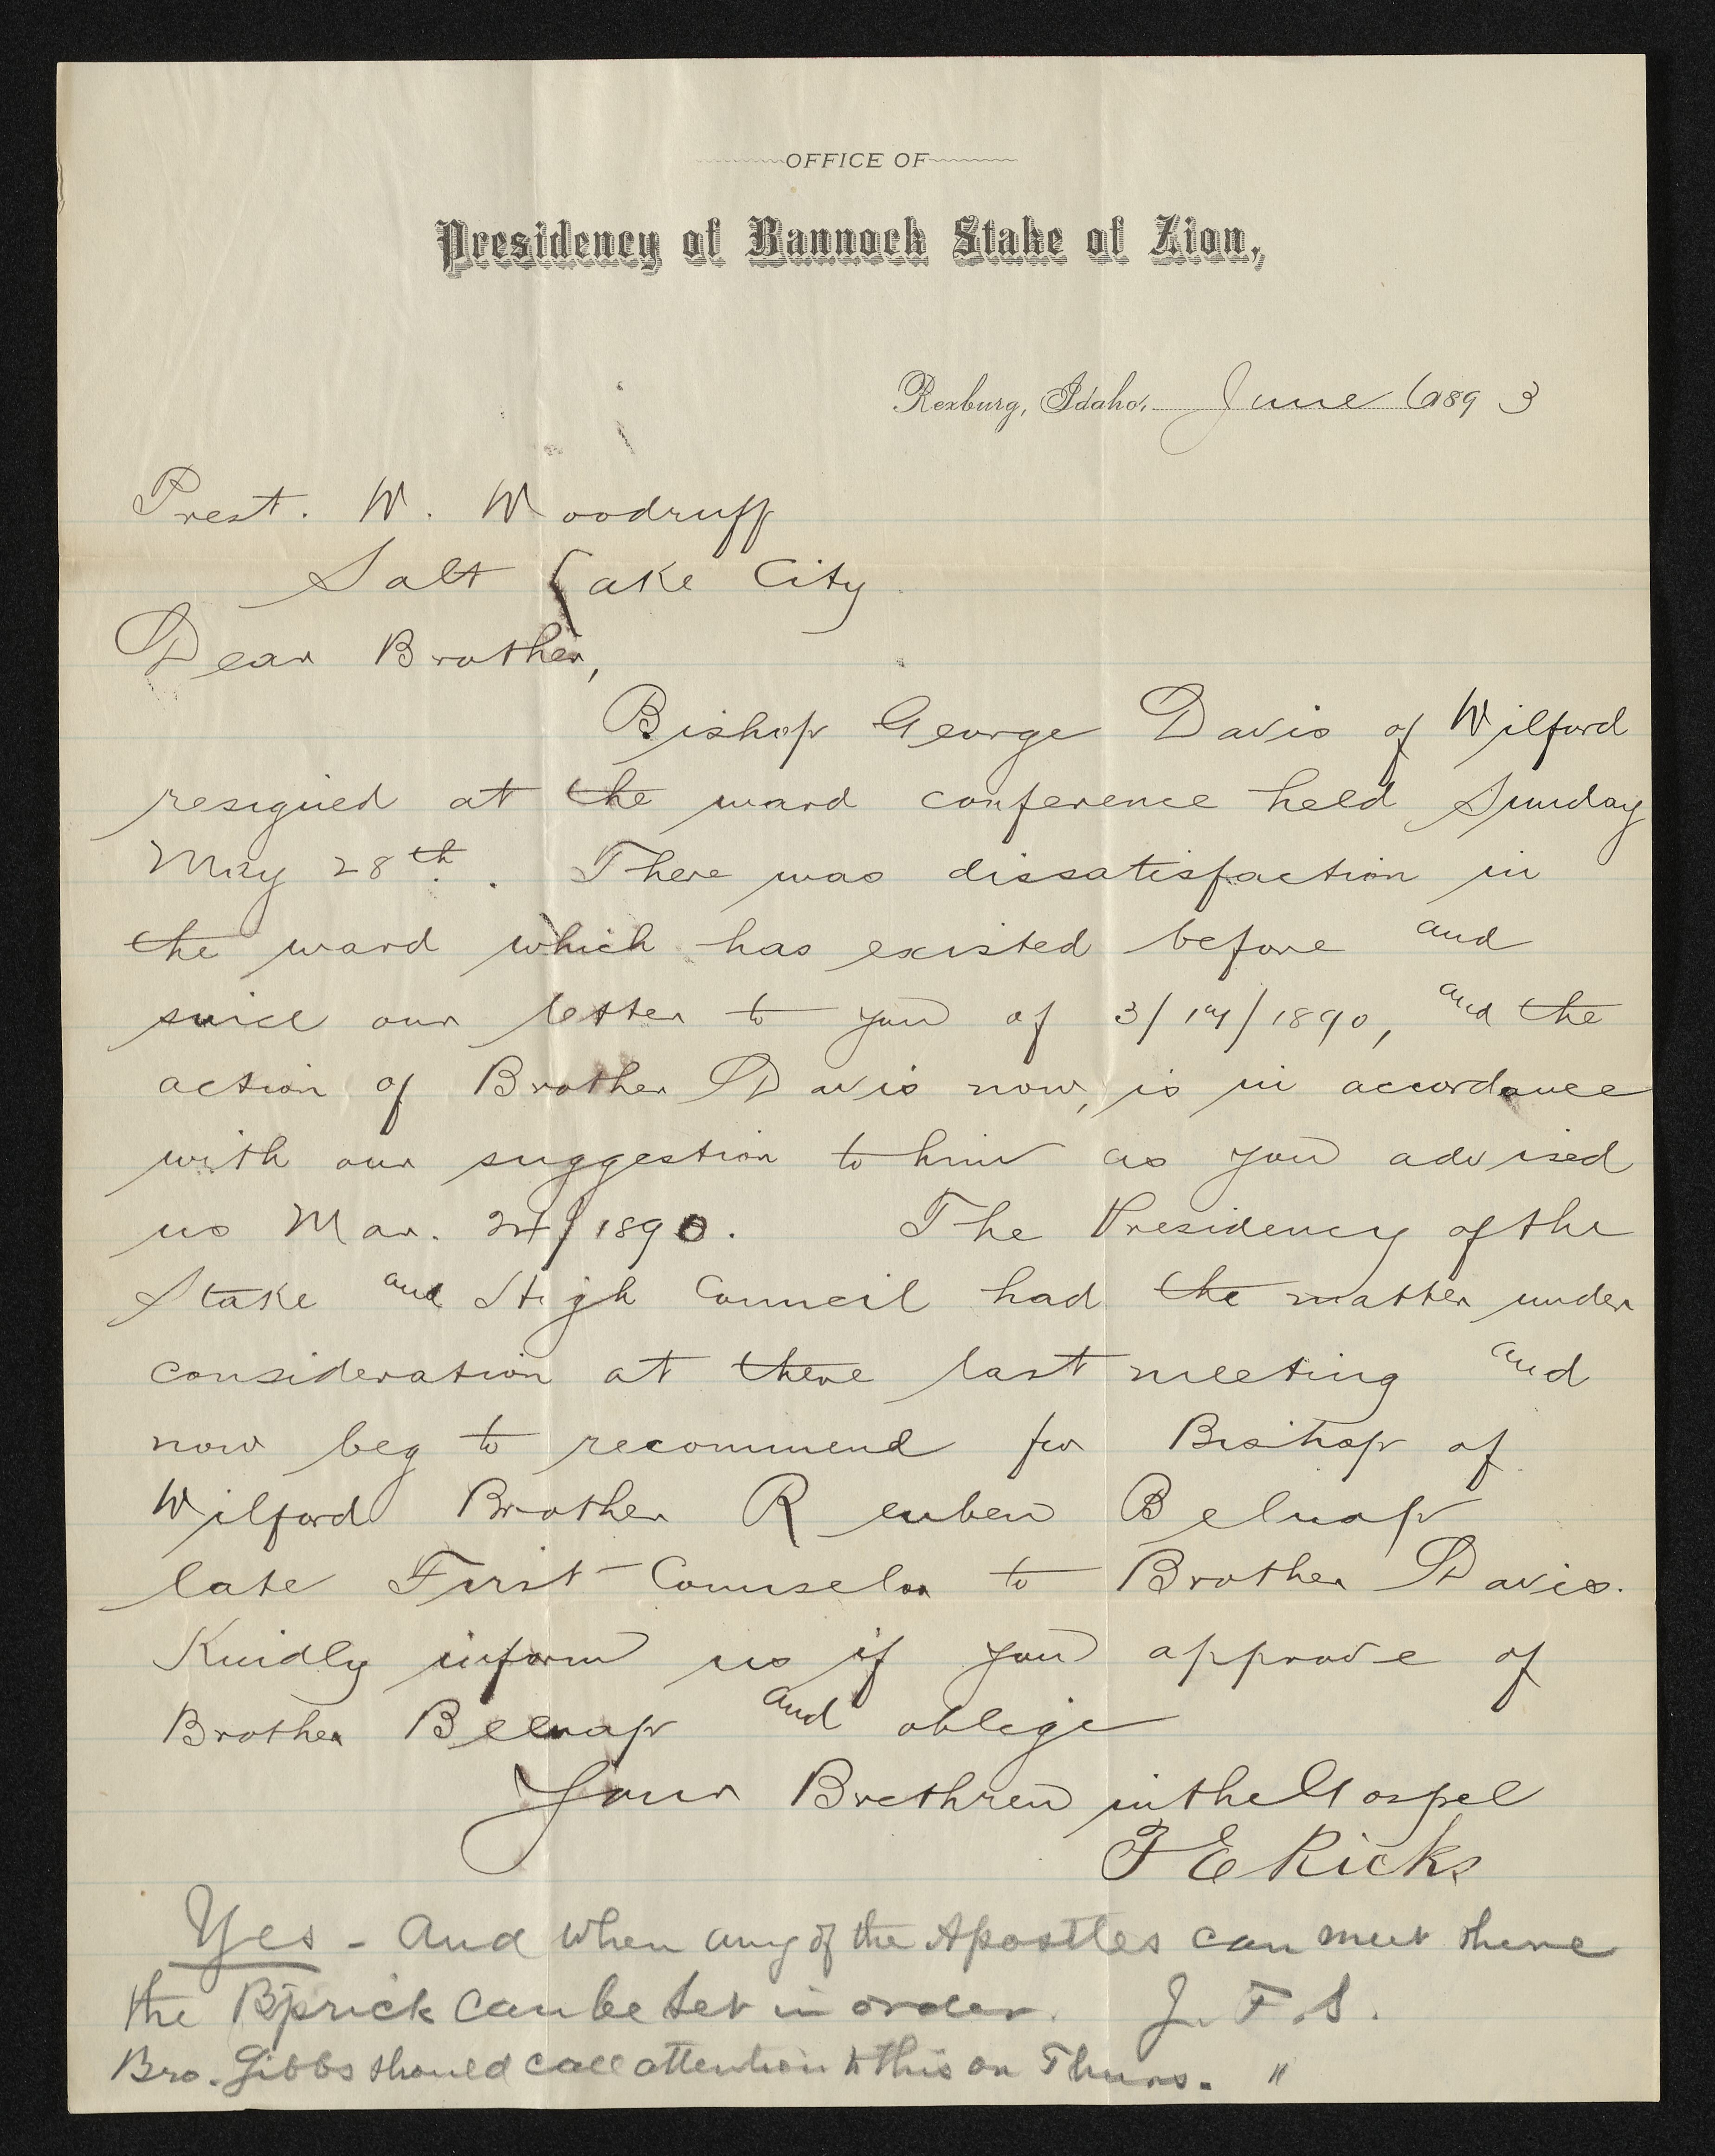 OFFICE OF
Presidency of Bannock Stake of Zion,
Rexburg, Idaho, June 6 1893
Prest. W. Woodruff
Salt Lake City
Dear Brother,
Bishop George Davis of Wilford
resigned at the ward conference held Sunday
May 28th. There was dissatisfaction in
the ward which has existed before and
since our letter to you of 3/17/1890, and the
action of Brother Davis now, is in accordance
with our suggestion to him as you advised
us Mar. 24/1890. The Presidency of the
Stake and High Council had the matter under
consideration at there last meeting and
now beg to recommend for Bishop of
Wilford Brother Reuben Belnap
late First Counselor to Brother Davis.
Kindly inform us if you approve of
Brother Belnap and oblige
Your Brethren in the Gospel
T E Ricks
Yes - and when any of the Apostles can meet there
the Bprick can be set in order. J. F. S.
Bro. Gibbs should call attention to this on Thurs. "